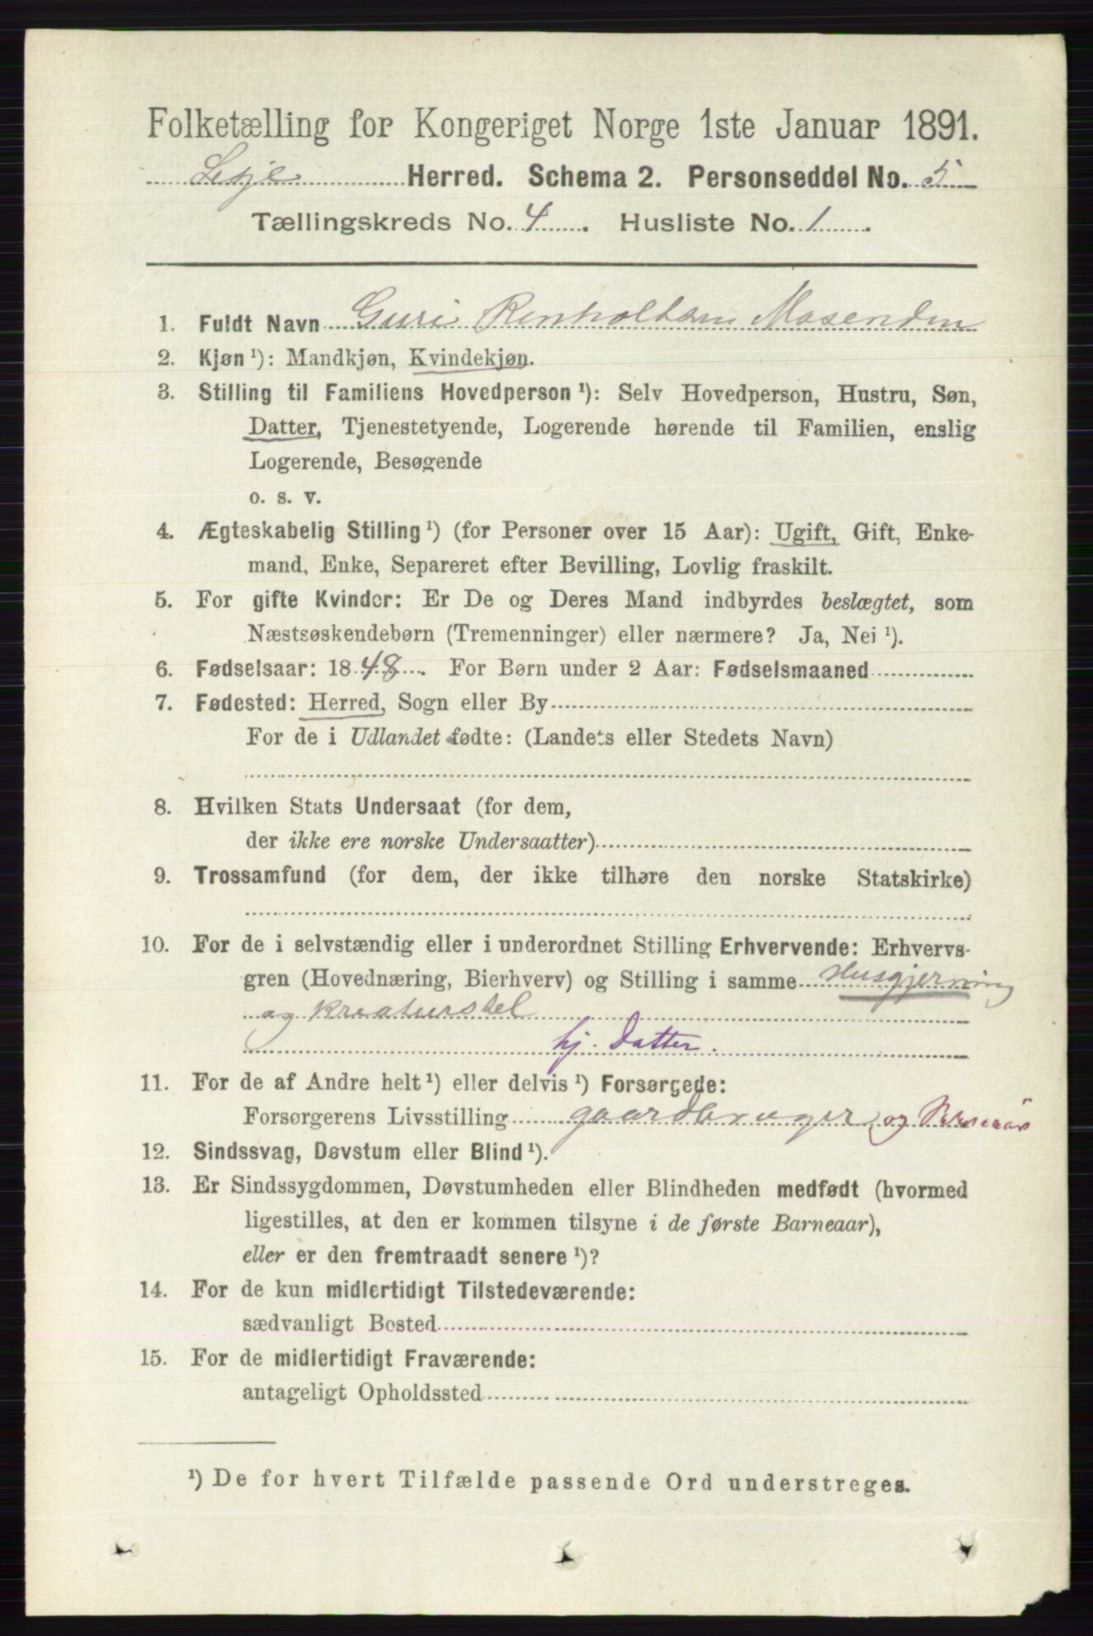 Folketælling for Kongeriget Norge 1ste Januar 1891.
Lesje Herred. Schema 2. Personseddel No. 5
Tællingskreds No. 4. Husliste No. 1.
1. Fuldt Navn Guri Mosenden
2. Kjøn ¹): Mandkjøn, Kvindekjøn.
3. Stilling til Familiens Hovedperson ¹): Selv Hovedperson, Hustru, Søn,
Datter, Tjenestetyende, Logerende hørende til Familien, enslig
Logerende, Besøgende
o. s. v.
4. Ægteskabelig Stilling ¹) (for Personer over 15 Aar): Ugift, Gift, Enke-
mand, Enke, Separeret efter Bevilling, Lovlig fraskilt.
5. For gifte Kvinder: Er De og Deres Mand indbyrdes beslægtet, som
Næstsøskendebørn (Tremenninger) eller nærmere? Ja, Nei ¹).
6. Fødselsaar: 1848. For Børn under 2 Aar: Fødselsmaaned
7. Fødested: Herred, Sogn eller By
For de i Udlandet fødte: (Landets eller Stedets Navn)
8. Hvilken Stats Undersaat (for dem,
der ikke ere norske Undersaatter)
9. Trossamfund (for dem, der ikke tilhøre den norske Statskirke)
10. For de i selvstændig eller i underordnet Stilling Erhvervende: Erhvervs-
gren (Hovednæring, Bierhverv) og Stilling i samme Husgjerning
og kreaturstel
hj. Datter.
11. For de af Andre helt ¹) eller delvis ¹) Forsørgede:
Forsørgerens Livsstilling gaardbruger og
12. Sindssvag, Døvstum eller Blind ¹).
13. Er Sindssygdommen, Døvstumheden eller Blindheden medfødt (hvormed
ligestilles, at den er kommen tilsyne i de første Barneaar),
eller er den fremtraadt senere ¹)?
14. For de kun midlertidigt Tilstedeværende:
sædvanligt Bosted
15. For de midlertidigt Fraværende:
antageligt Opholdssted
¹) De for hvert Tilfælde passende Ord understreges.